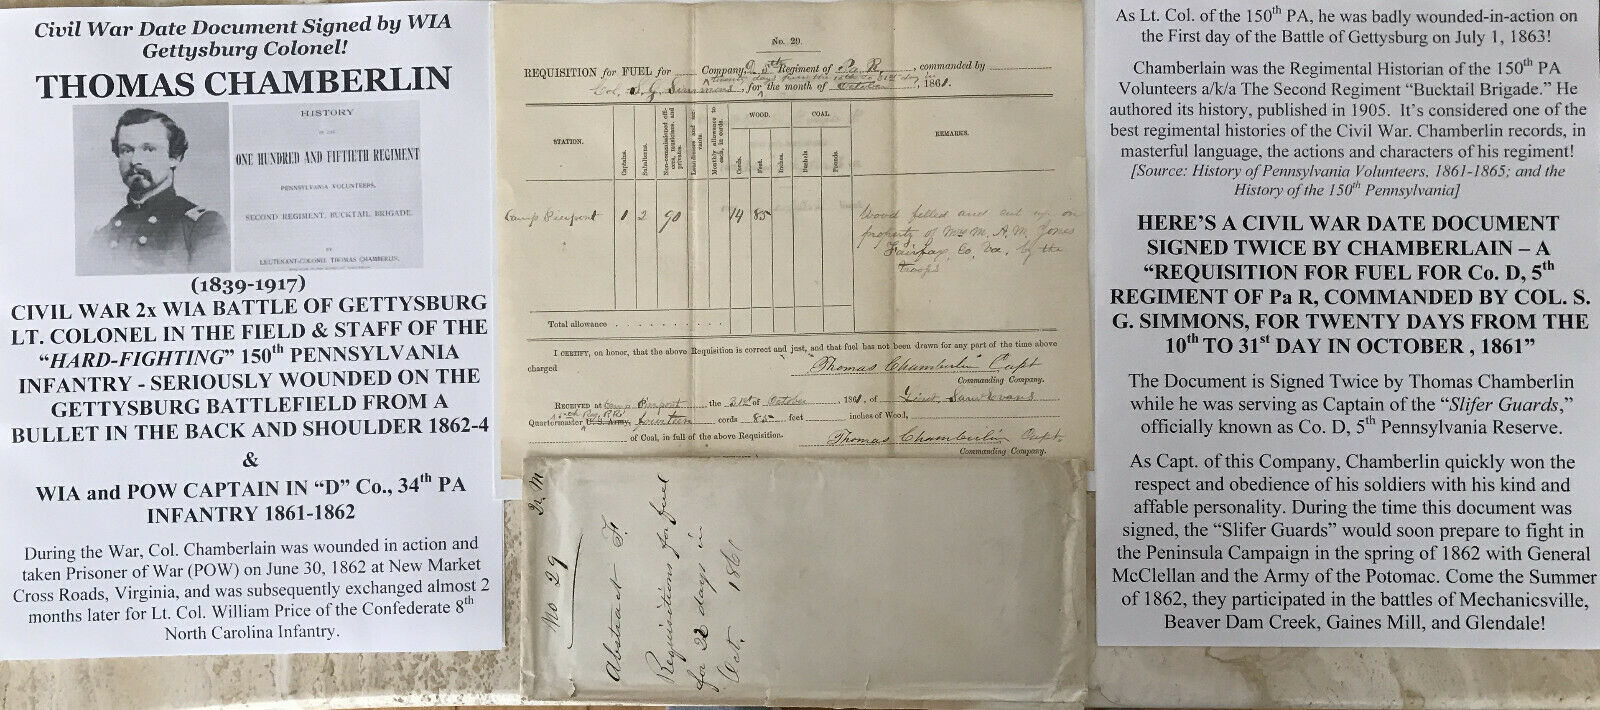 Civil War Date Document Signed by WIA
Gettysburg Colonel!
THOMAS CHAMBERLIN
HISTORY
OF THE
ONE HUNDRED AND FIFTIETH REGIMENT
PENNSYLVANIA VOLUNTEERS,
SECOND REGIMENT, BUCKTAIL BRIGADE.
BY
LIEUTENANT-COLONEL THOMAS CHAMBERLIN,
(1839-1917)
CIVIL WAR 2x WIA BATTLE OF GETTYSBURG
LT. COLONEL IN THE FIELD & STAFF OF THE
“HARD-FIGHTING” 150th PENNSYLVANIA
INFANTRY - SERIOUSLY WOUNDED ON THE
GETTYSBURG BATTLEFIELD FROM A
BULLET IN THE BACK AND SHOULDER 1862-4
&
WIA and POW CAPTAIN IN “D” Co., 34th PA
INFANTRY 1861-1862
During the War, Col. Chamberlain was wounded in action and
taken Prisoner of War (POW) on June 30, 1862 at New Market
Cross Roads, Virginia, and was subsequently exchanged almost 2
months later for Lt. Col. William Price of the Confederate 8th
North Carolina Infantry.
No. 29.
REQUISITION for FUEL for Company D 5th Regiment of Pa R., commanded by
twenty days from the 10th to 31st day in
Col. S. G. Simmons, for the month of October, 1861.
STATION.
Captains.
Subalterns.
Non-commissioned officers, musicians, and privates.
Laundresses and servants.
Monthly allowance to each, in cords.
WOOD.
Cords.
Feet.
Inches.
COAL
Bushels
Pounds.
REMARKS.
Camp Pierpont 1 2 90 14 85 Wood felled and cut up on
property of Mrs M. A. M. Jones
Fairfax, Co, Va., by the
troops
Total allowance
I CERTIFY, on honor, that the above Requisition is correct and just, and that fuel has not been drawn for any part of the time above
charged Thomas Chamberlin Capt
Commanding Company.
RECEIVED at Camp Pierpont the 31st of October, 1861, of Lieut. Saml Evans
Quartermaster U. S. Army, fourteen cords 85 feet inches of Wood,
of Coal, in full of the above Requisition. Thomas Chamberlin Capt.
Commanding Company.
Qr. M
No 29
Abstract F.
Requisitions for fuel
for 22 days in
Oct. 1861
As Lt. Col. of the 150th PA, he was badly wounded-in-action on
the First day of the Battle of Gettysburg on July 1, 1863!
Chamberlain was the Regimental Historian of the 150th PA
Volunteers a/k/a The Second Regiment “Bucktail Brigade.” He
authored its history, published in 1905. It’s considered one of the
best regimental histories of the Civil War. Chamberlin records, in
masterful language, the actions and characters of his regiment!
[Source: History of Pennsylvania Volunteers, 1861-1865; and the
History of the 150th Pennsylvania]
HERE’S A CIVIL WAR DATE DOCUMENT
SIGNED TWICE BY CHAMBERLAIN – A
“REQUISITION FOR FUEL FOR Co. D, 5th
REGIMENT OF Pa R, COMMANDED BY COL. S.
G. SIMMONS, FOR TWENTY DAYS FROM THE
10th TO 31st DAY IN OCTOBER , 1861”
The Document is Signed Twice by Thomas Chamberlin
while he was serving as Captain of the “Slifer Guards,”
officially known as Co. D, 5th Pennsylvania Reserve.
As Capt. of this Company, Chamberlin quickly won the
respect and obedience of his soldiers with his kind and
affable personality. During the time this document was
signed, the “Slifer Guards” would soon prepare to fight in
the Peninsula Campaign in the spring of 1862 with General
McClellan and the Army of the Potomac. Come the Summer
of 1862, they participated in the battles of Mechanicsville,
Beaver Dam Creek, Gaines Mill, and Glendale!